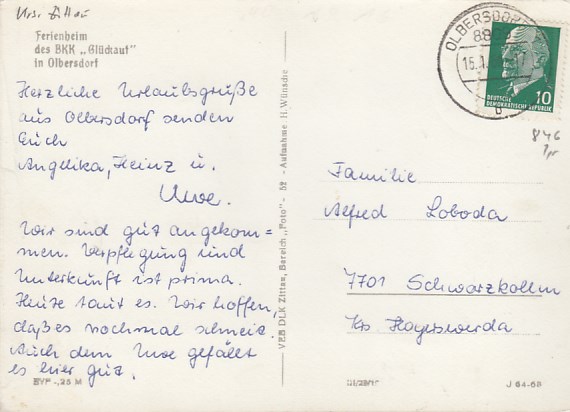 Krs. Zittau
Ferienheim
des BKK „Glückauf“
in Olbersdorf
Herzliche Urlaubsgrüße
aus Olbersdorf senden
Euch
Angelika, Heinz u.
Uwe.
Wir sind gut angekom=
men. Verpflegung und
Unterkunft ist prima.
Heute taut es. Wir hoffen,
daß es nochmal schneit.
Auch dem Uwe gefällt
es hier gut.
EVP -,25 M
VEB DLK Zittau, Bereich „Foto“ - 52 - Aufnahme H. Wünsche
OLBERSDORF
880
15.1.
b
DEUTSCHE
DEMOKRATISCHE REPUBLIK
10
846
Familie
Alfred Loboda
7701 Schwarzkollm
Krs Hoyerswerda
III/28/16
J 64-68